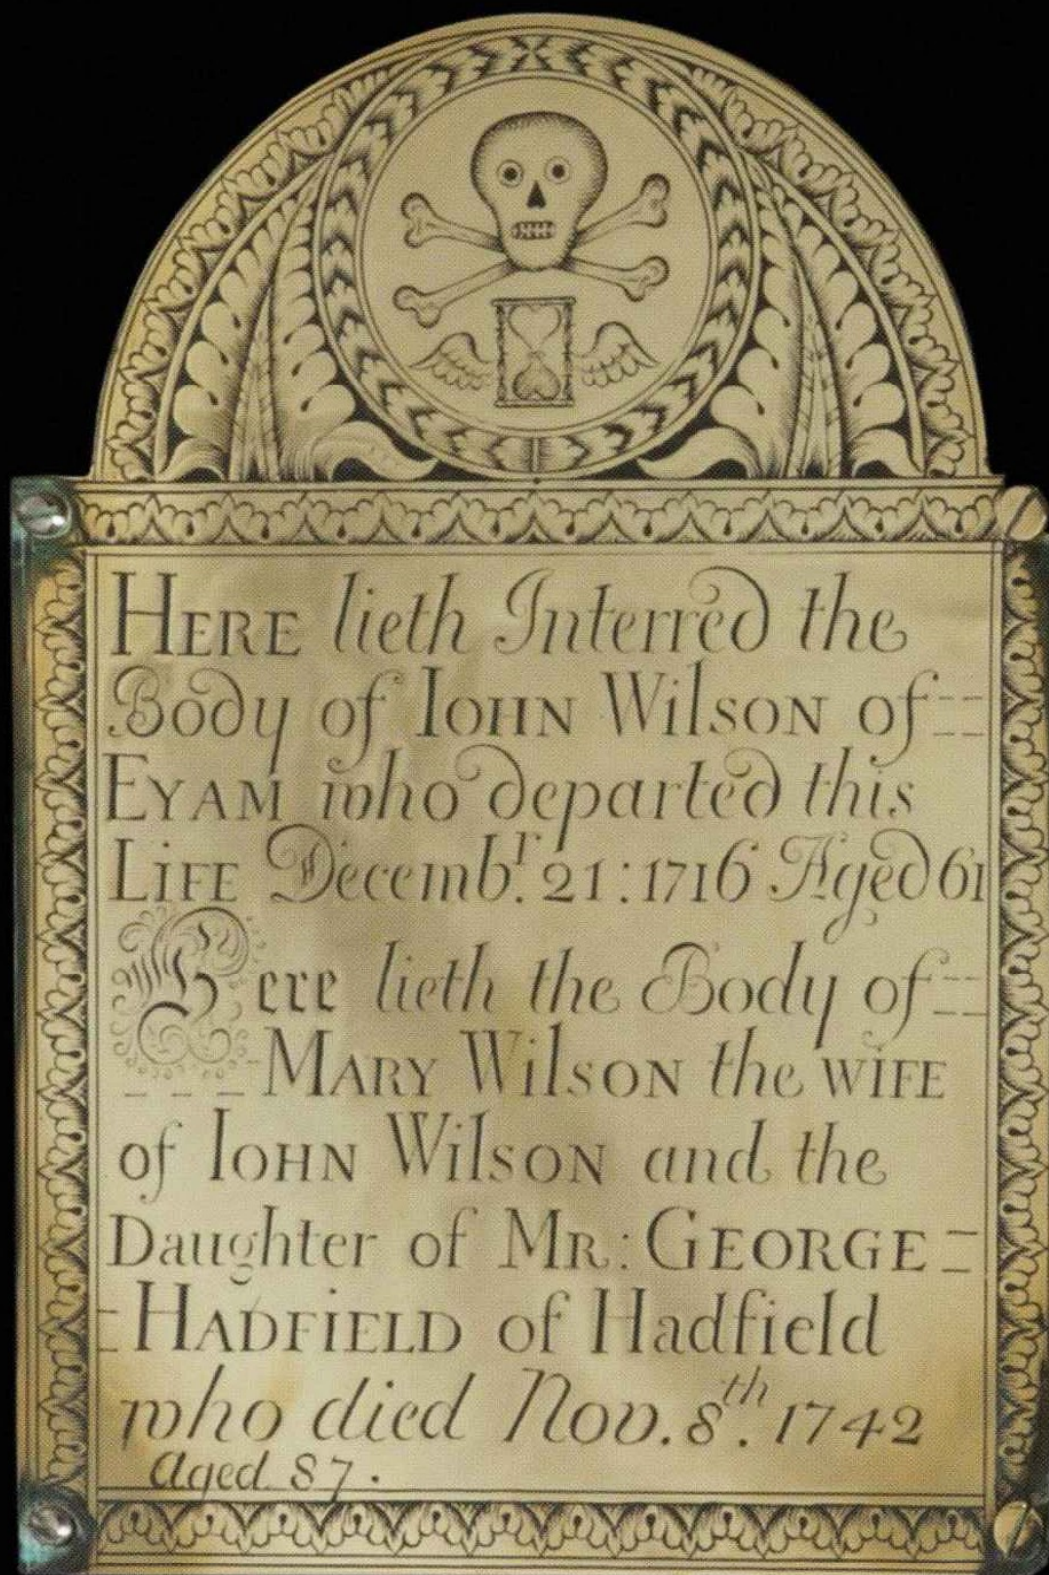 HERE lieth Interred the
Body of IOHN Wilson of
EYAM who departed this
LIFE Decemb.r 21 : 1716 Aged 61
Here lieth the Body of
MARY Wilson the WIFE
of IOHN Wilson and the
Daughter of MR : GEORGE
HADFIELD of Hadfield
who died Nov. 8th. 1742
Aged 87.